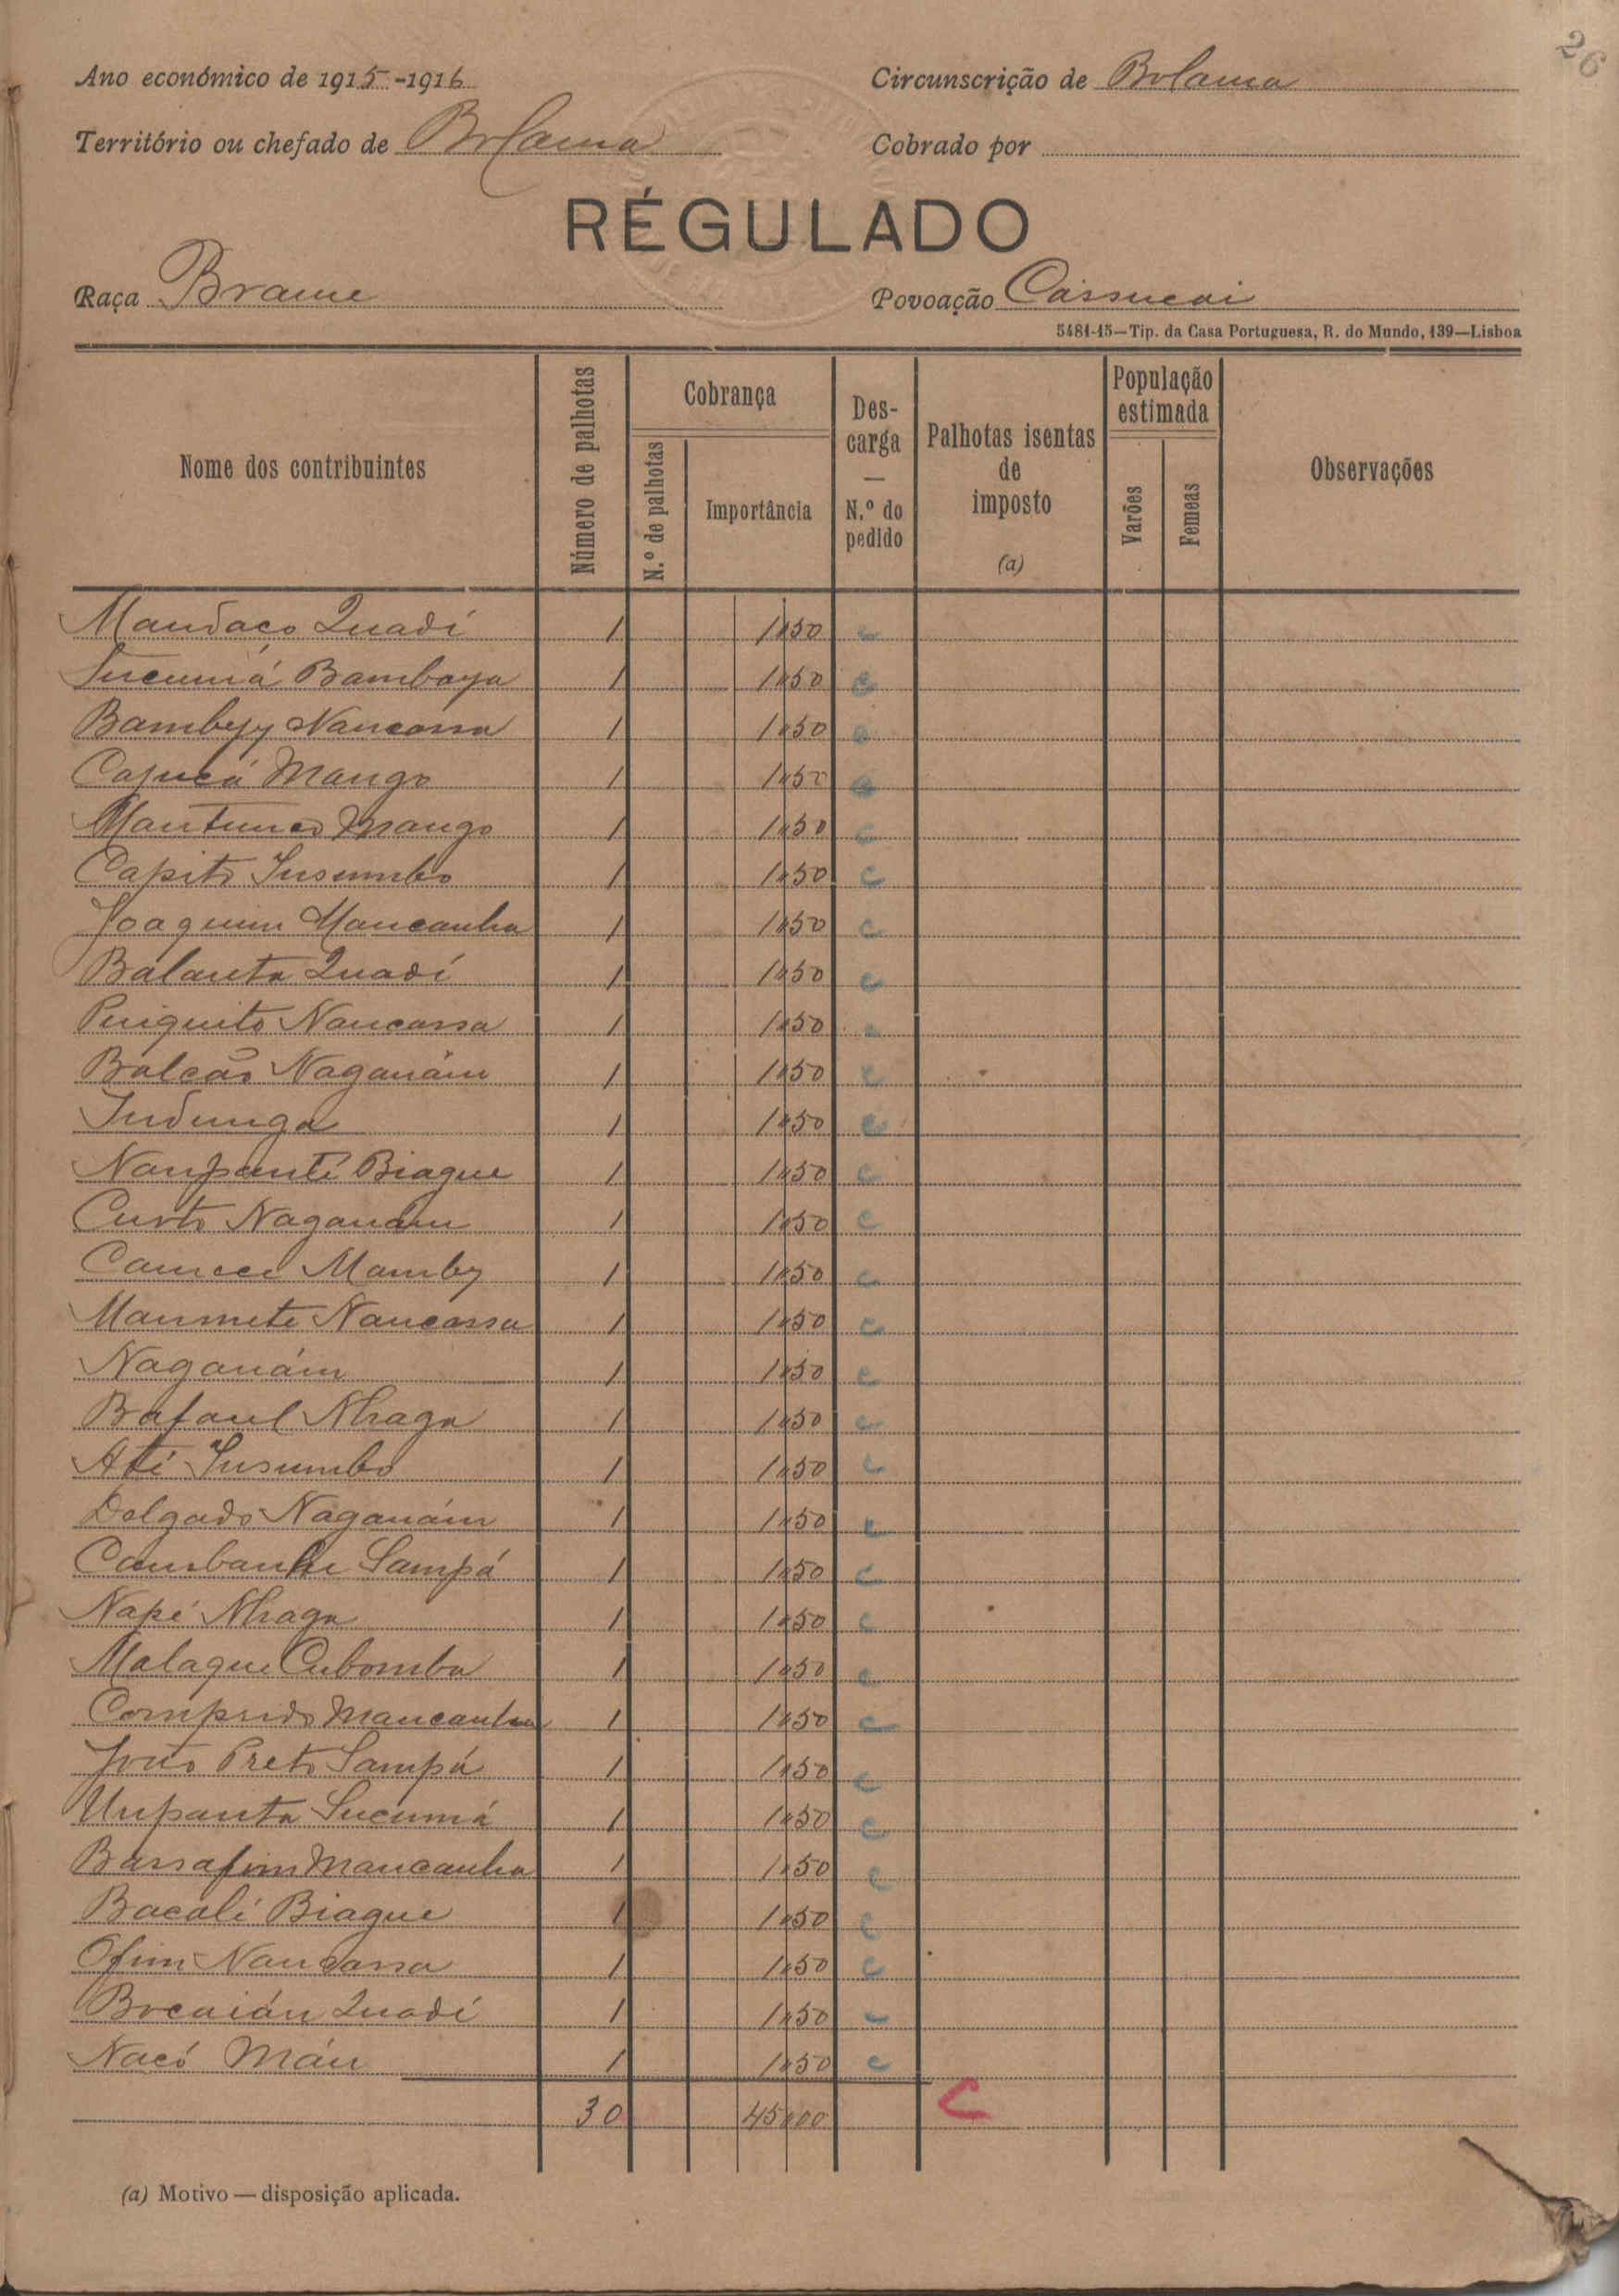 26
Ano económico de 1915-1916 Circunscrição de Bolama
Território ou chefado de Bolama Cobrado por
RÉGULADO
Raça Brame Povoação Cassucai
5481-15—Tip. da Casa Portuguesa, R. do Mundo, 139—Lisboa
Nome dos contribuintes Número de palhotas Cobrança N.º de palhotas Importância Descarga — N.º do pedido Palhotas isentas de imposto (a) População estimada Varões Femeas Observações
Mandaço Quadí 1 1$50 c
Sucumá Bambaya 1 1$50 c
Bamby Nancassa 1 1$50 c
Cajucá Mango 1 1$50 c
Mantunes Mango 1 1$50 c
Capito Insumbo 1 1$50 c
Joaquim Mancanha 1 1$50 c
Balanta Quadí 1 1$50 c
Piriquito Nancassa 1 1$50 c
Balcão Naganám 1 1$50 c
Indunga 1 1$50 c
Nanpantí Biague 1 1$50 c
Curto Naganám 1 1$50 c
Mamby 1 1$50 c
Maumete Nancassa 1 1$50 c
Naganám 1 1$50 c
Rafael Nhaga 1 1$50 c
Atí Insumbo 1 1$50 c
Delgado Naganám 1 1$50 c
Cambanhe Sampá 1 1$50 c
Napé Nhaga 1 1$50 c
Malaque Cubomba 1 1$50 c
Comprido Mancanha 1 1$50 c
João Preto Sampá 1 1$50 c
Unpanta Sucumá 1 1$50 c
Bassafim Mancanha 1 1$50 c
Bacalí Biague 1 1$50 c
Ofim Nancassa 1 1$50 c
Bocaián Quadí 1 1$50 c
Nacó Mán 1 1$50 c
30 45$00 C
(a) Motivo — disposição aplicada.